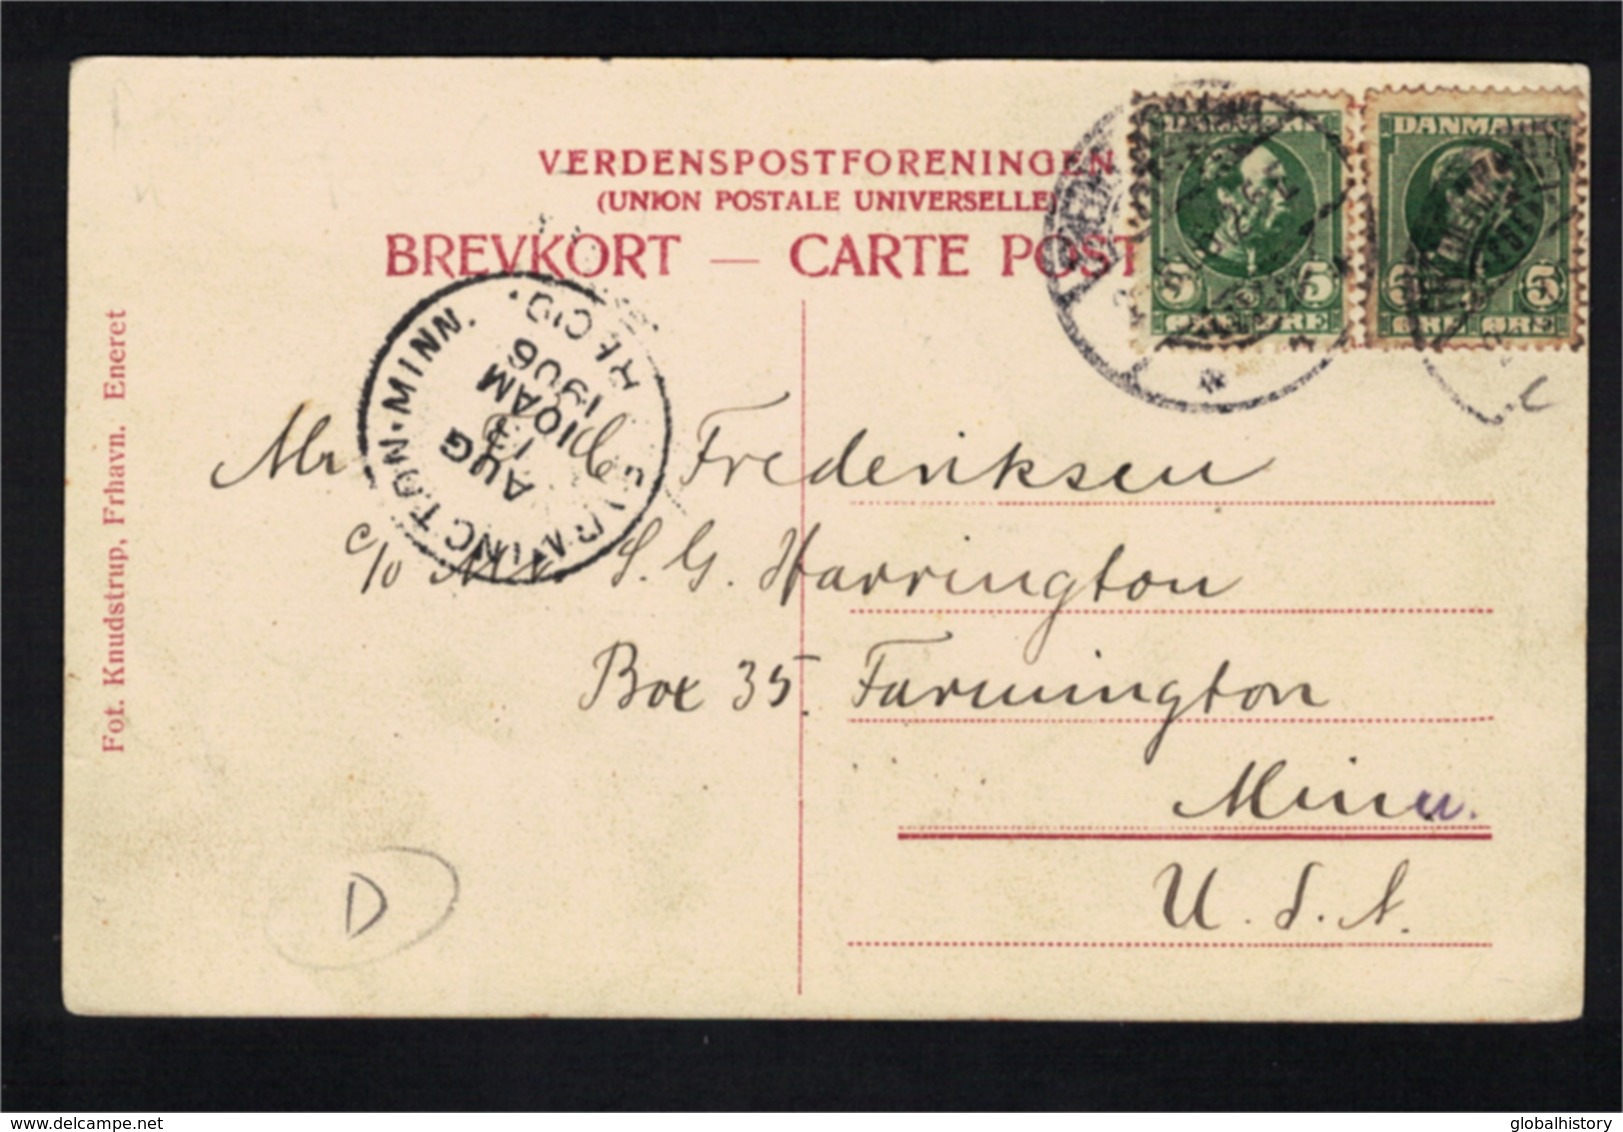 VERDENSPOSTFORENINGEN
(UNION POSTALE UNIVERSELLE)
BREVKORT — CARTE POST
DANMARK
5 5
ØRE ØRE
DANMARK
5 5
ØRE ØRE
FARMINGTON. MINN.
AUG
13
10AM
1906
REC'D.
Mr Frederiksen
c/o Mr. S. G. Harrington
Box 35. Farmington
Minn.
U. S. A.
Fot. Knudstrup, Frhavn. Eneret
D
delcampe.net
globalhistory